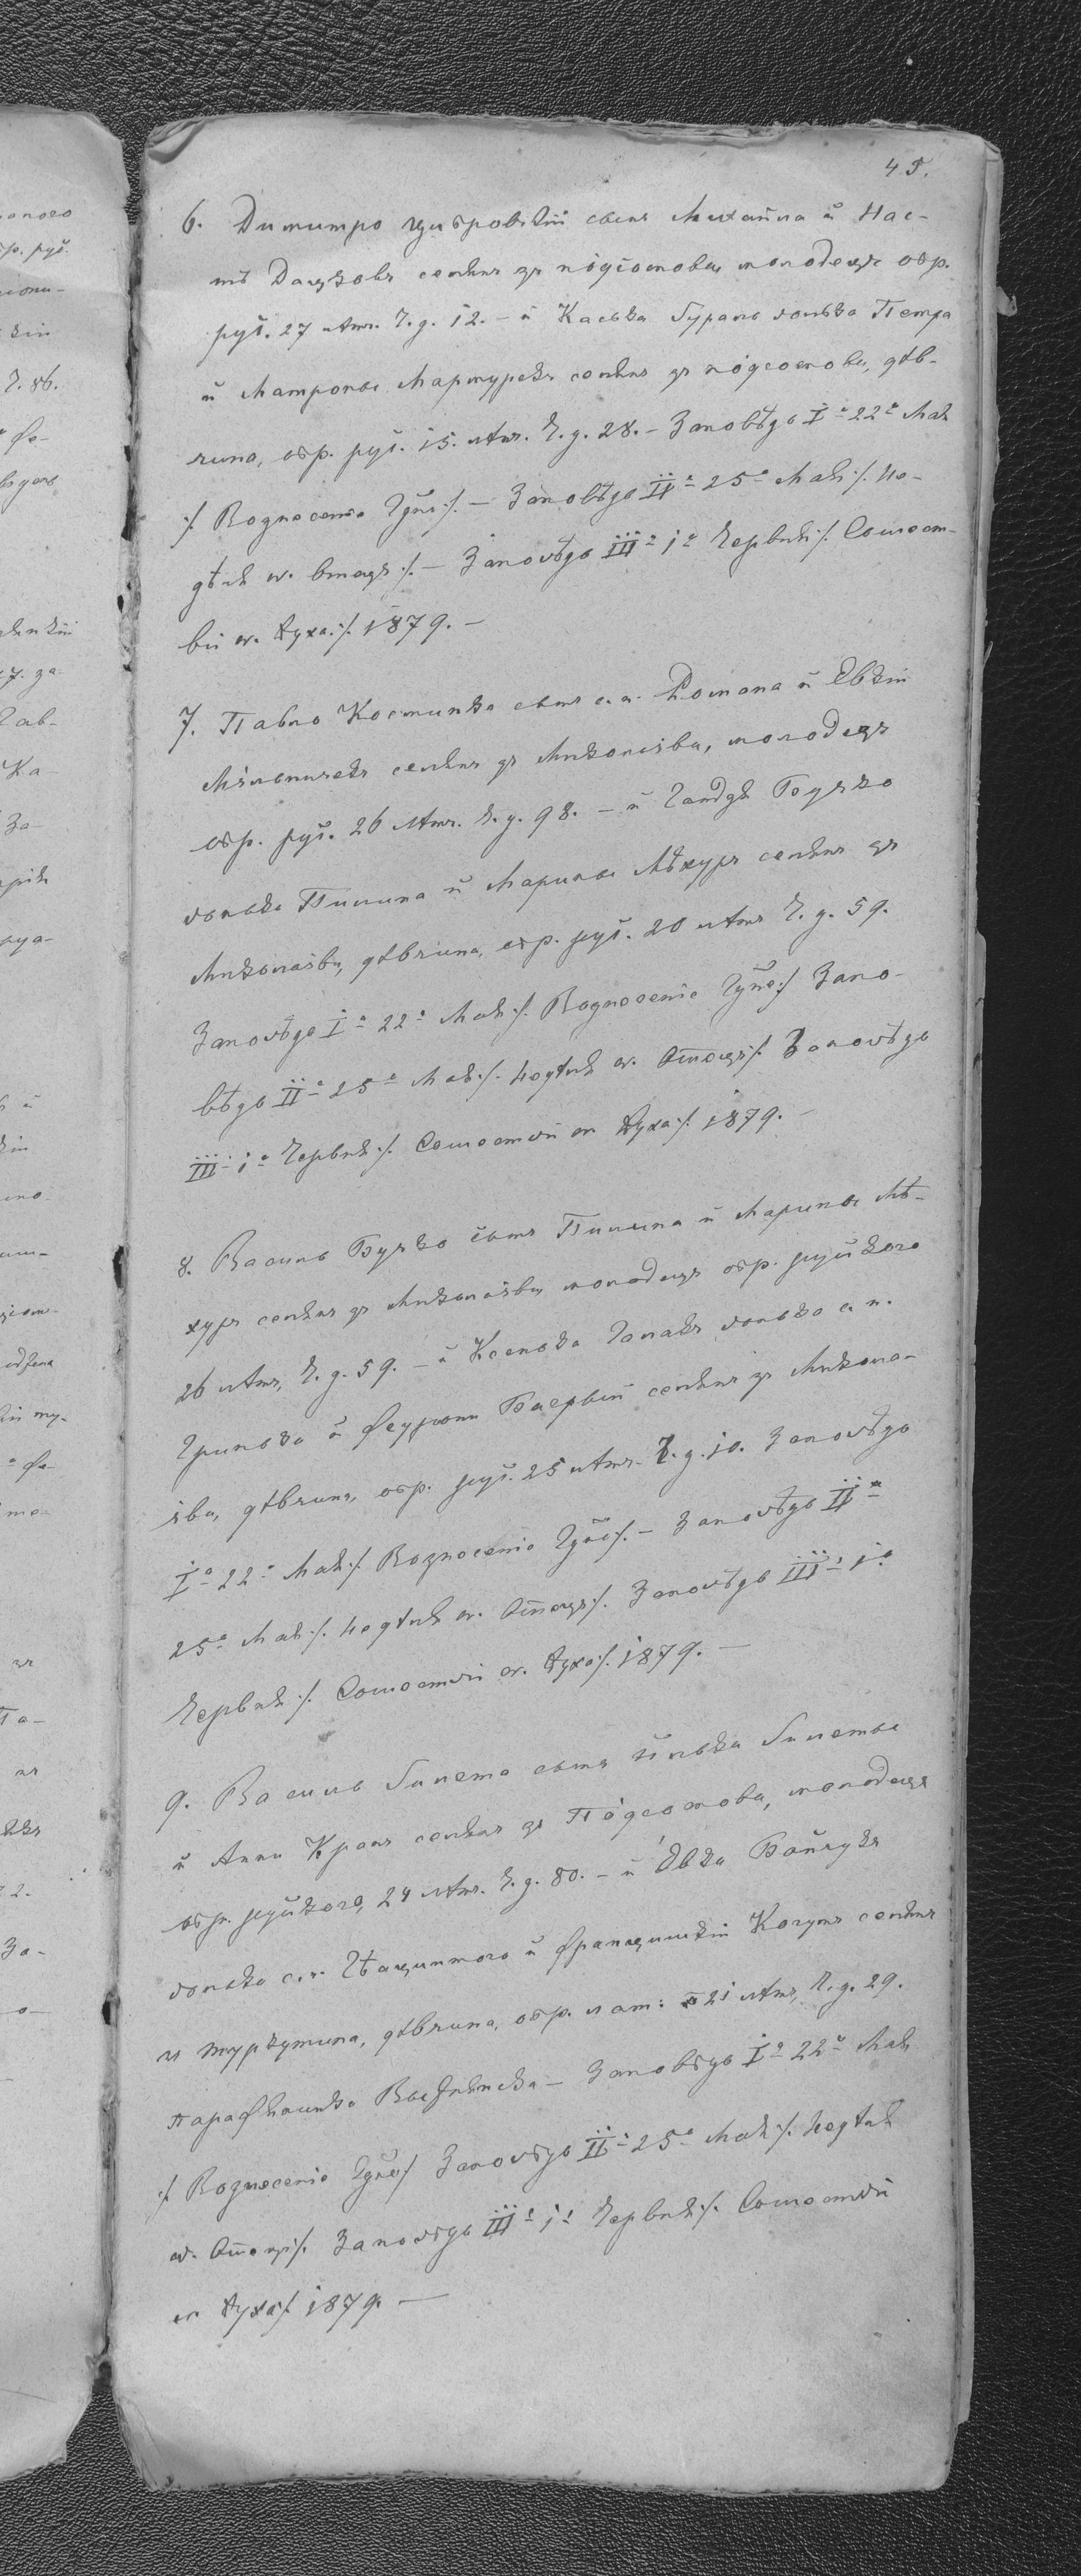 45.
6. Димитро Цибровскій сынъ Михайла и Нас-
тѣ Дацковъ селянъ зъ підсоснова, молодецъ обр.
рус. 27 лѣтъ Ч. д. 12. – и Каська Гураль донька Петра
и Матроны Мартурекъ селянъ зъ підсоснова, дѣв-
чина, обр. рус. 15. лѣтъ. Ч. д. 28. – Заповѣдь I-а 22-о Мая
/: Вознесеніе Гдне :/. – Заповѣдь II-а 25-о Мая /: Не-
дѣля св. Отецъ :/ – Заповѣдь III-а 1-о Червня /: Сошест-
вія св. Духа :/ 1879. –
7. Павло Костинка сынъ с. п. Романа и Евкіи
селянъ зъ Миколаіва, молодецъ
обр. рус. 26 лѣтъ. Ч. д. 98. – и Гандзя Буцко
донька Пилипа и Марины Мѣхуръ селянъ зъ
Миколаіва, дѣвчина, обр. рус. 20 лѣтъ Ч. д. 59.
Заповѣдь I-а 22-о Мая /: Вознесеніе Гдне :/ Запо-
вѣдь II-а 25-о Мая /: Недѣля св. Отецъ :/ Заповѣдь
III-а 1-о Червня /: Сошествія св Духа :/ 1879. –
8. Василь Буцко сынъ Пилипа и Марины Мѣ-
хуръ селянъ зъ Миколаіва, молодецъ обр. руского
26 лѣтъ, Ч. д. 59. – и Ксенька донька с. п.
Гринька и Феврони селянъ зъ Микола-
іва, дѣвчина, обр. рус. 25 лѣтъ. Ч. д. 10. Заповѣдь
I-а 22-о Мая /: Вознесеніе Гдне :/ – Заповѣдь II-а
25-о Мая /: Недѣля св. Отецъ :/ Заповѣдь III-а 1-о
Червня /: Сошествія св. Духа :/ 1879. –
9. Василь Гилета сынъ Илька Гилеты
и Анны Краль селянъ зъ Підсоснова, молодецъ
обр. руского, 24 лѣтъ. Ч. д. 80. – и Евка Бойчукъ
донька с. п. и Францишкіи Когутъ селянъ
дѣвчина, обр. лат: 21 лѣтъ, Ч. д. 29.
Парафіянка – Заповѣдь I-а 22-о Мая
/: Вознесеніе Гдне :/ Заповѣдь II-а 25-о Мая /: Недѣля
св. Отецъ :/ Заповѣдь III-а 1-о Червня /: Сошествія
св Духа :/ 1879. –